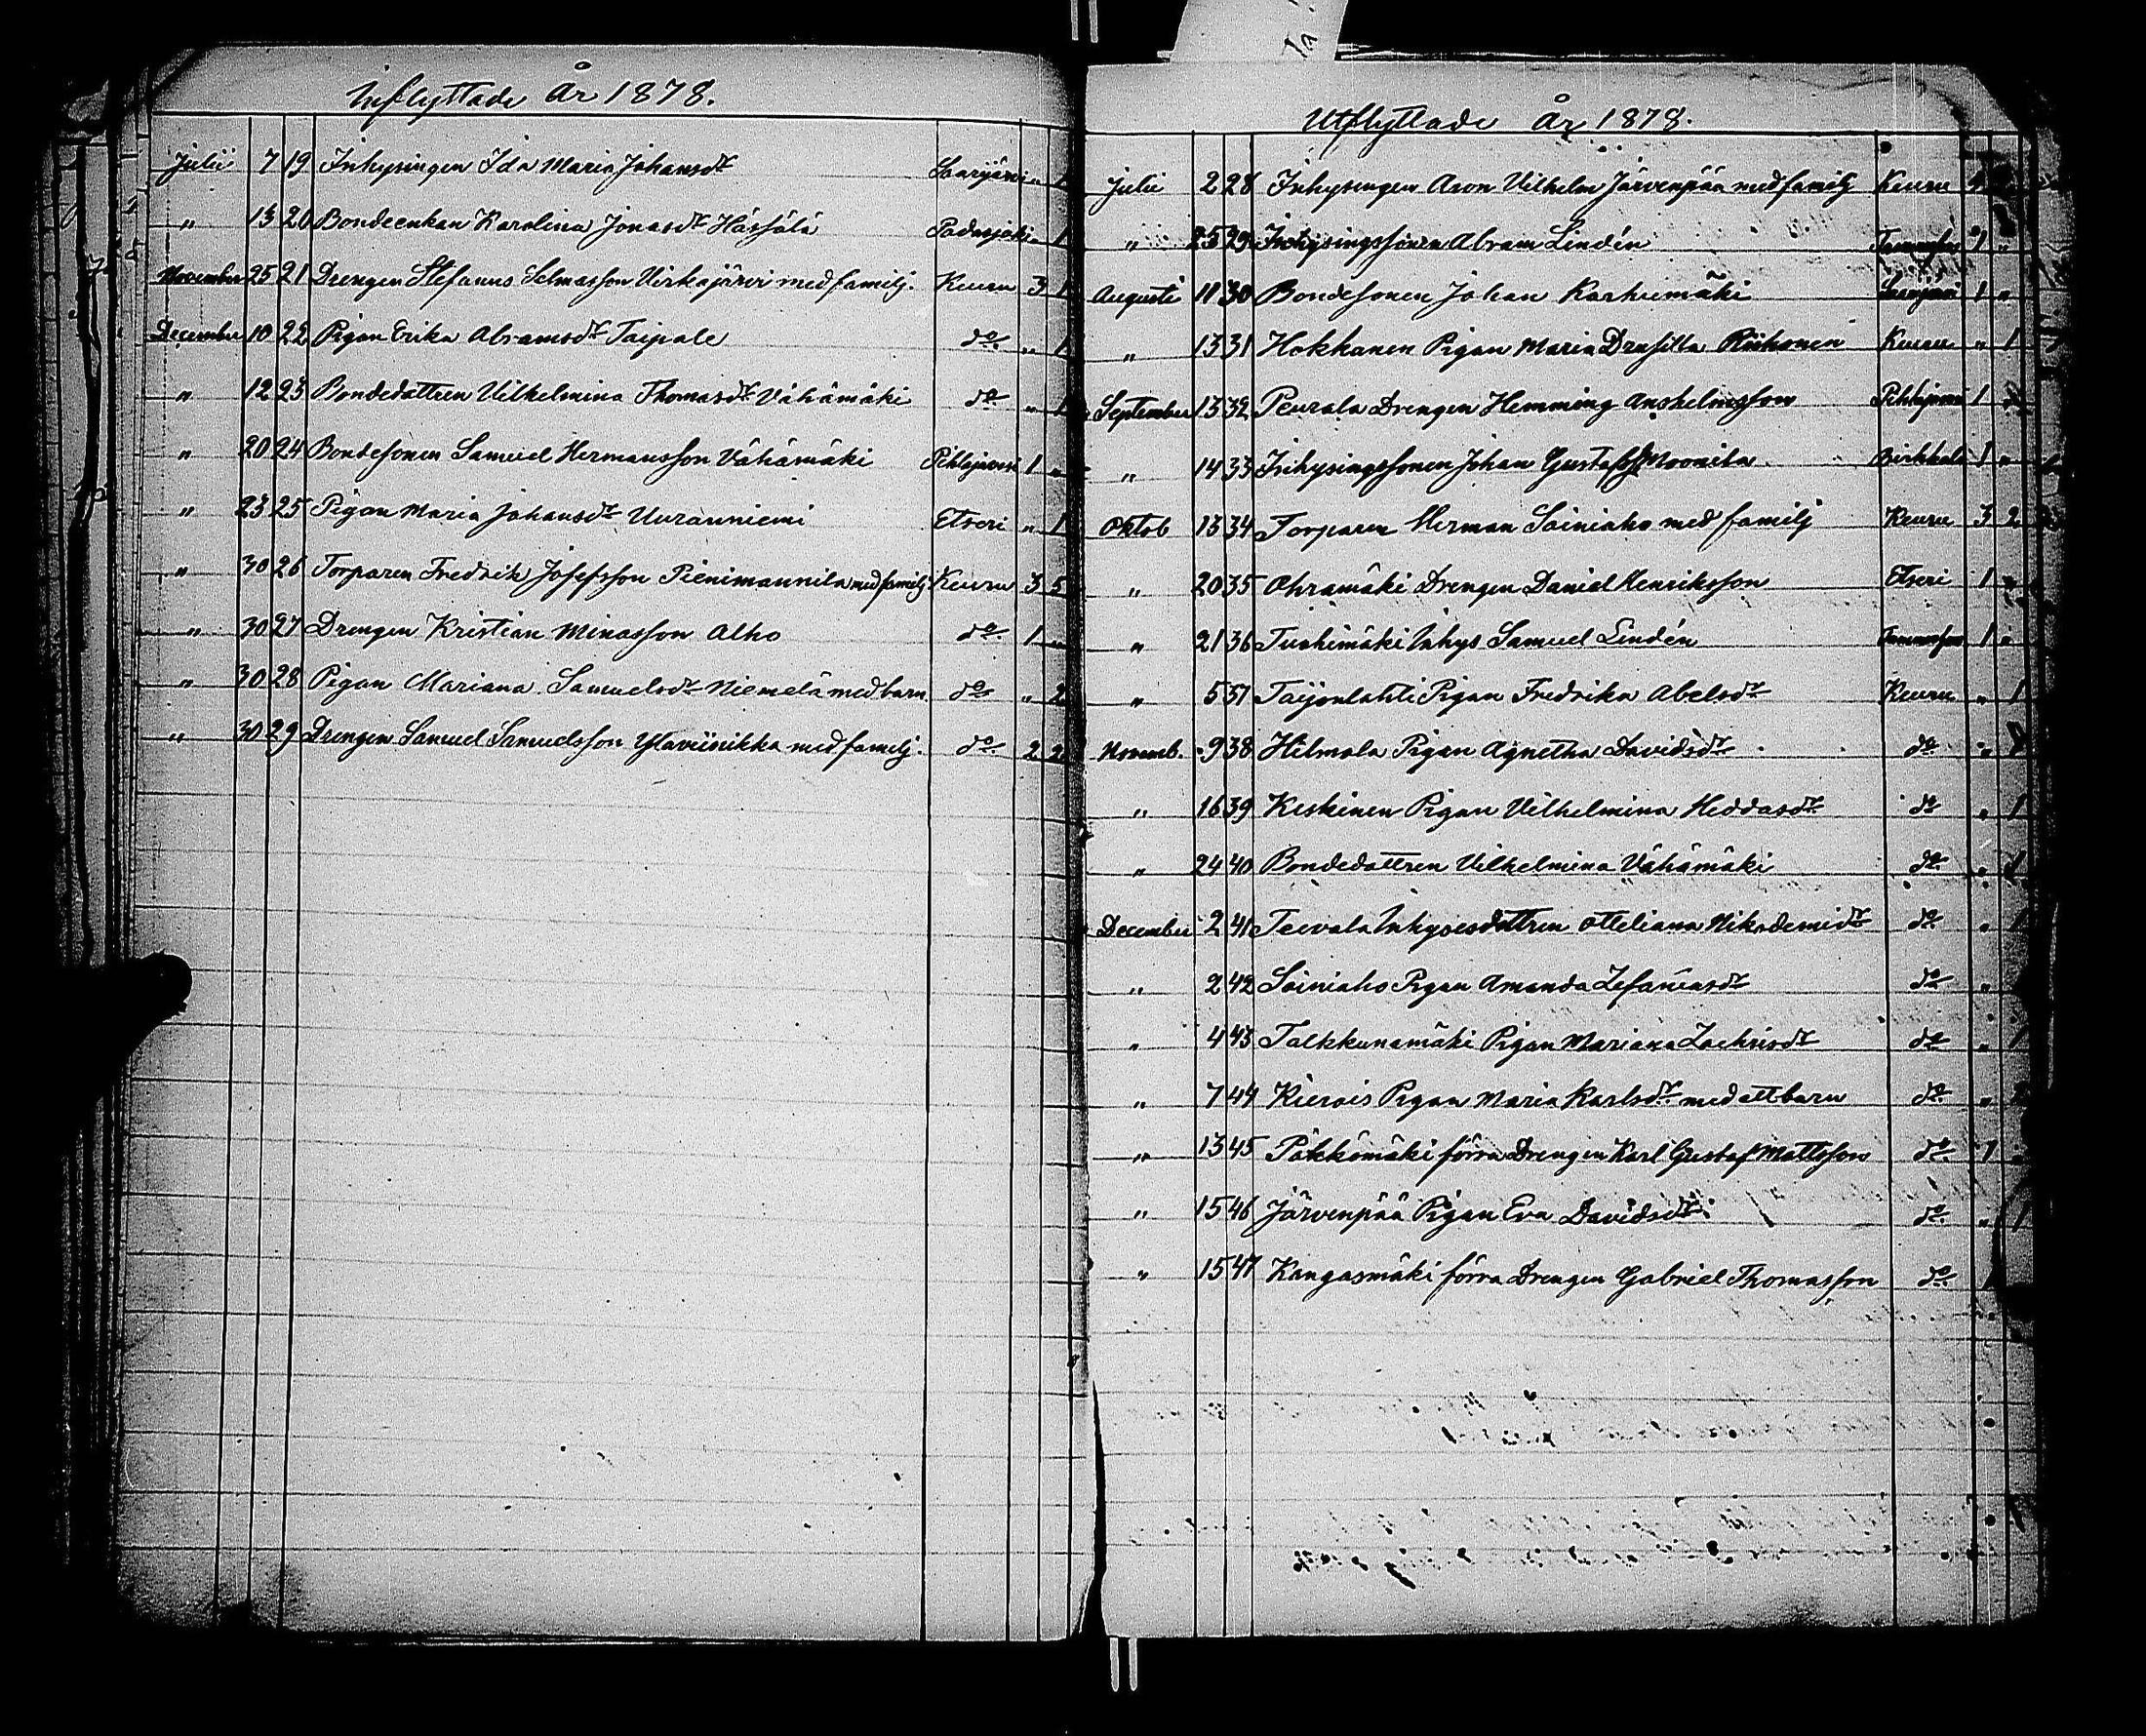 Inflyttade År 1878.
Julii 7 19 Inhysingen Ida Maria Johansdr Saarijärvi „ 1
„ 13 20 Bondeenkan Karolina Jonasdr Hassälä Padasjoki „ 1
November 25 21 Drengen Stefanus Selmasson Virkajärvi med familj. Keuru 3 1
December 10 22 Pigan Erika Abramsdr Taipale do „ 1
„ 12 23 Bondedottren Vilhelmina Thomasdr Vähämäki do „ 1
„ 20 24 Bondesonen Samuel Hermansson Vähämäki Pihlajavesi 1 „
„ 23 25 Pigan Maria Johansdr Uuranniemi Etseri „ 1
„ 30 26 Torparen Fredrik Josefsson Pienimannila med familj Keuru 3 5
„ 30 27 Drengen Kristian Minasson Alho do 1 „
„ 30 28 Pigan Mariana Samuelsdr Niemelä med barn. do „ 2
„ 30 29 Drengen Samuel Samuelsson Ylaviinikka med familj. do 2 2
Utflyttade År 1878.
Julii 2 28 Inhysingen Aron Vilhelm Järvenpää med familj Keuru
„ 25 29 Inhysingssonen Abram Lindén Tammerfors 1 „
Augusti 11 30 Bondesonen Johan Karhumäki Saarijärvi 1 „
„ 13 31 Hokkanen Pigan Maria Drusilla Riihonen Keuru „ 1
September 13 32 Peurala Drengen Hemming Anshelmsson Pihlajavesi 1
„ 14 33 Inhysingssonen Johan Gustafss Moonila Birkkala 1 „
Oktob 13 34 Torparen Herman Soiniaho med familj Keuru 3 2
„ 20 35 Ohramäki Drengen Daniel Henriksson Etseri 1 „
„ 21 36 Tuohimäki Inhys Samuel Lindén Tammerfors 1 „
„ 5 37 Taijonlahti Pigan Fredrika Abelsdr Keuru „ 1
Novemb. 9 38 Hilmola Pigan Agnetha Davidsdr do „ 1
„ 16 39 Keskinen Pigan Vilhelmina Heddasdr do „ 1
„ 24 40 Bondedottren Vilhelmina Vähämäki do „ 1
December 2 41 Teevala Inhysesdottren Otteliana Nikodemidr do „ 1
„ 2 42 Soiniaho Pigan Amanda Zefaniasdr do „
„ 4 43 Talkkunamäki Pigan Mariana Zachrisdr do „ 1
„ 7 44 Kierois Pigan Maria Karlsdr med ett barn do „ 2
„ 13 45 Pökkömäki förra Drengen Karl Gustaf Mattsson do 1
„ 15 46 Järvenpää Pigan Eva Davidsdr do „ 1
„ 15 47 Kangasmäki förra Drengen Gabriel Thomasson do 1